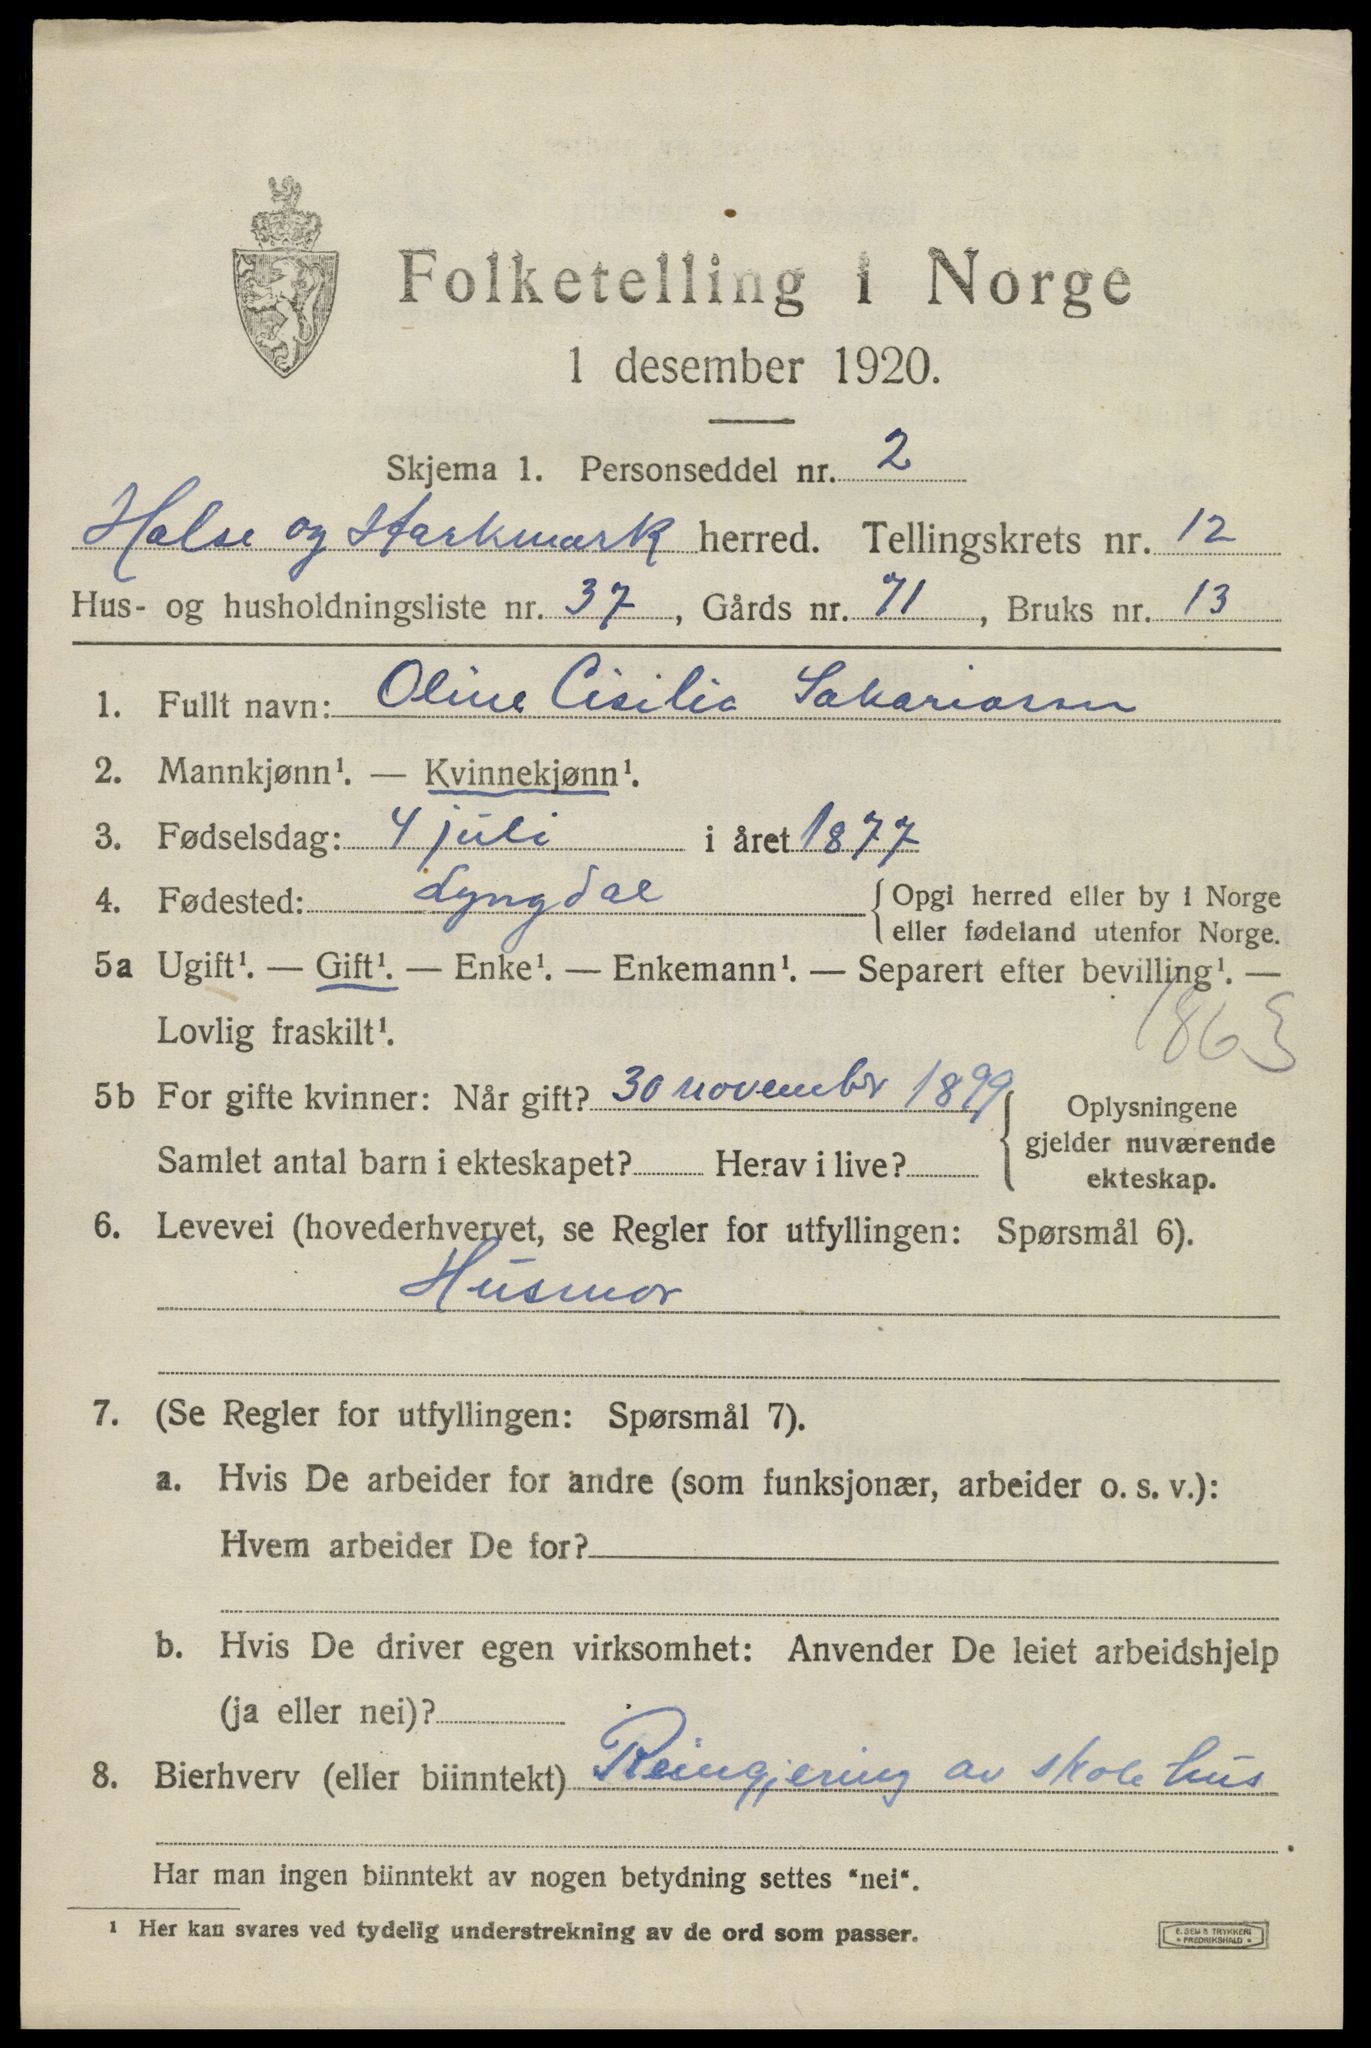 Folketelling i Norge
1 desember 1920.
Skjema 1. Personseddel nr. 2
Halse og Harkmark herred. Tellingskrets nr. 12
Hus- og husholdningsliste nr. 37, Gårds nr. 71, Bruks nr. 13
1. Fullt navn: Oline Cisilia Sakariasen
2. Mannkjønn¹. — Kvinnekjønn¹.
3. Fødselsdag: 4 juli i året 1877
4. Fødested: Lyngdal { Opgi herred eller by i Norge
eller fødeland utenfor Norge.
5a Ugift¹. — Gift¹. — Enke¹. — Enkemann¹. — Separert efter bevilling¹. —
Lovlig fraskilt¹.
1863
5b For gifte kvinner: Når gift? 30 november 1899
Samlet antal barn i ekteskapet? Herav i live?
{ Oplysningene
gjelder nuværende
ekteskap.
6. Levevei (hovederhvervet, se Regler for utfyllingen: Spørsmål 6).
Husmor
7. (Se Regler for utfyllingen: Spørsmål 7).
a. Hvis De arbeider for andre (som funksjonær, arbeider o. s. v.):
Hvem arbeider De for?
b. Hvis De driver egen virksomhet: Anvender De leiet arbeidshjelp
(ja eller nei)?
8. Bierhverv (eller biinntekt) Reingjering av skolehus
Har man ingen biinntekt av nogen betydning settes "nei".
¹ Her kan svares ved tydelig understrekning av de ord som passer.
E. SEM'S TRYKKERI
• FREDRIKSHALD •